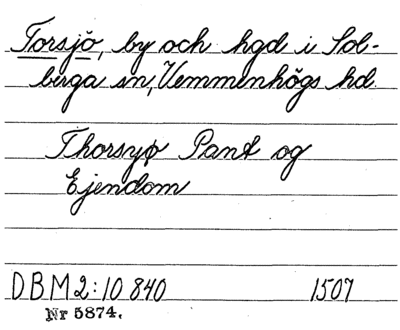 Torsjö, by och hgd i Sol-
berga sn, Vemmenhögs hd.
Thorsyø Pant og
Ejendom
DBM2:10 840 1507
Nr 5874.